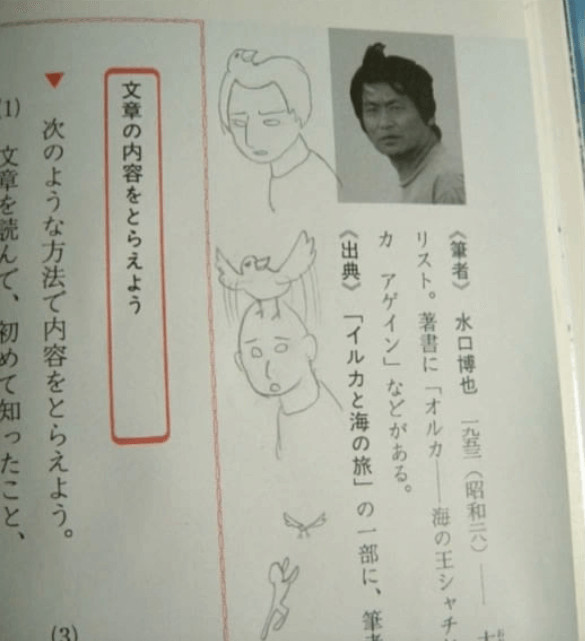 《筆者》 水口博也 一九五三(昭和二八)――
リスト。著書に「オルカ――海の王シャチ
カ アゲイン」などがある。
《出典》 「イルカと海の旅」の一部に、筆者
文章の内容をとらえよう
▼ 次のような方法で内容をとらえよう。
(1) 文章を読んで、初めて知ったこと、
(3)